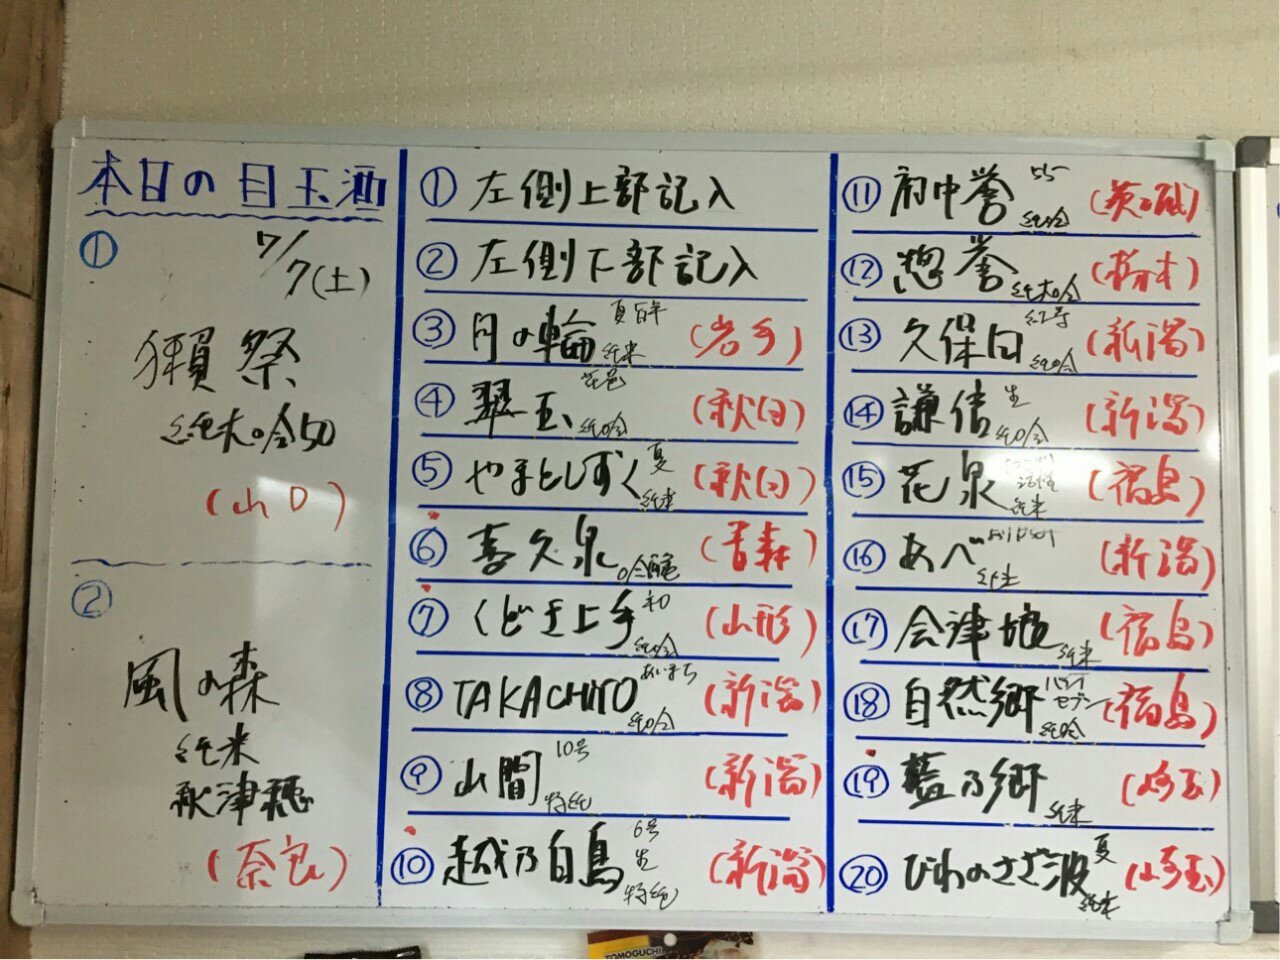 本日の目玉酒
①
7/7(土)
獺祭
純大吟50
(山口)
②
風の森
純米
秋津穂
(奈良)
① 左側上部記入
② 左側下部記入
③ 月の輪 夏 純米 (岩手)
④ 翠玉 花邑 純吟 (秋田)
⑤ やまとしずく 夏 純米 (秋田)
⑥ 喜久泉 吟醸 (青森)
⑦ くどき上手 初 純吟 (山形)
⑧ TAKACHIYO あいまち 純吟 (新潟)
⑨ 山間 10号 特純 (新潟)
⑩ 越乃白鳥 6号 生 特純 (新潟)
⑪ 府中誉 55 純吟 (茨城)
⑫ 惣誉 純大吟 (栃木)
⑬ 久保田 純吟 (新潟)
⑭ 謙信 生 純吟 (新潟)
⑮ 花泉 活性 純米 (福島)
⑯ あべ 純米 (新潟)
⑰ 会津娘 純米 (福島)
⑱ 自然郷 セブン 純吟 (福島)
⑲ 藍乃郷 純米 (埼玉)
⑳ びわのさざ波 夏 純米 (埼玉)
TOMOGUCHI